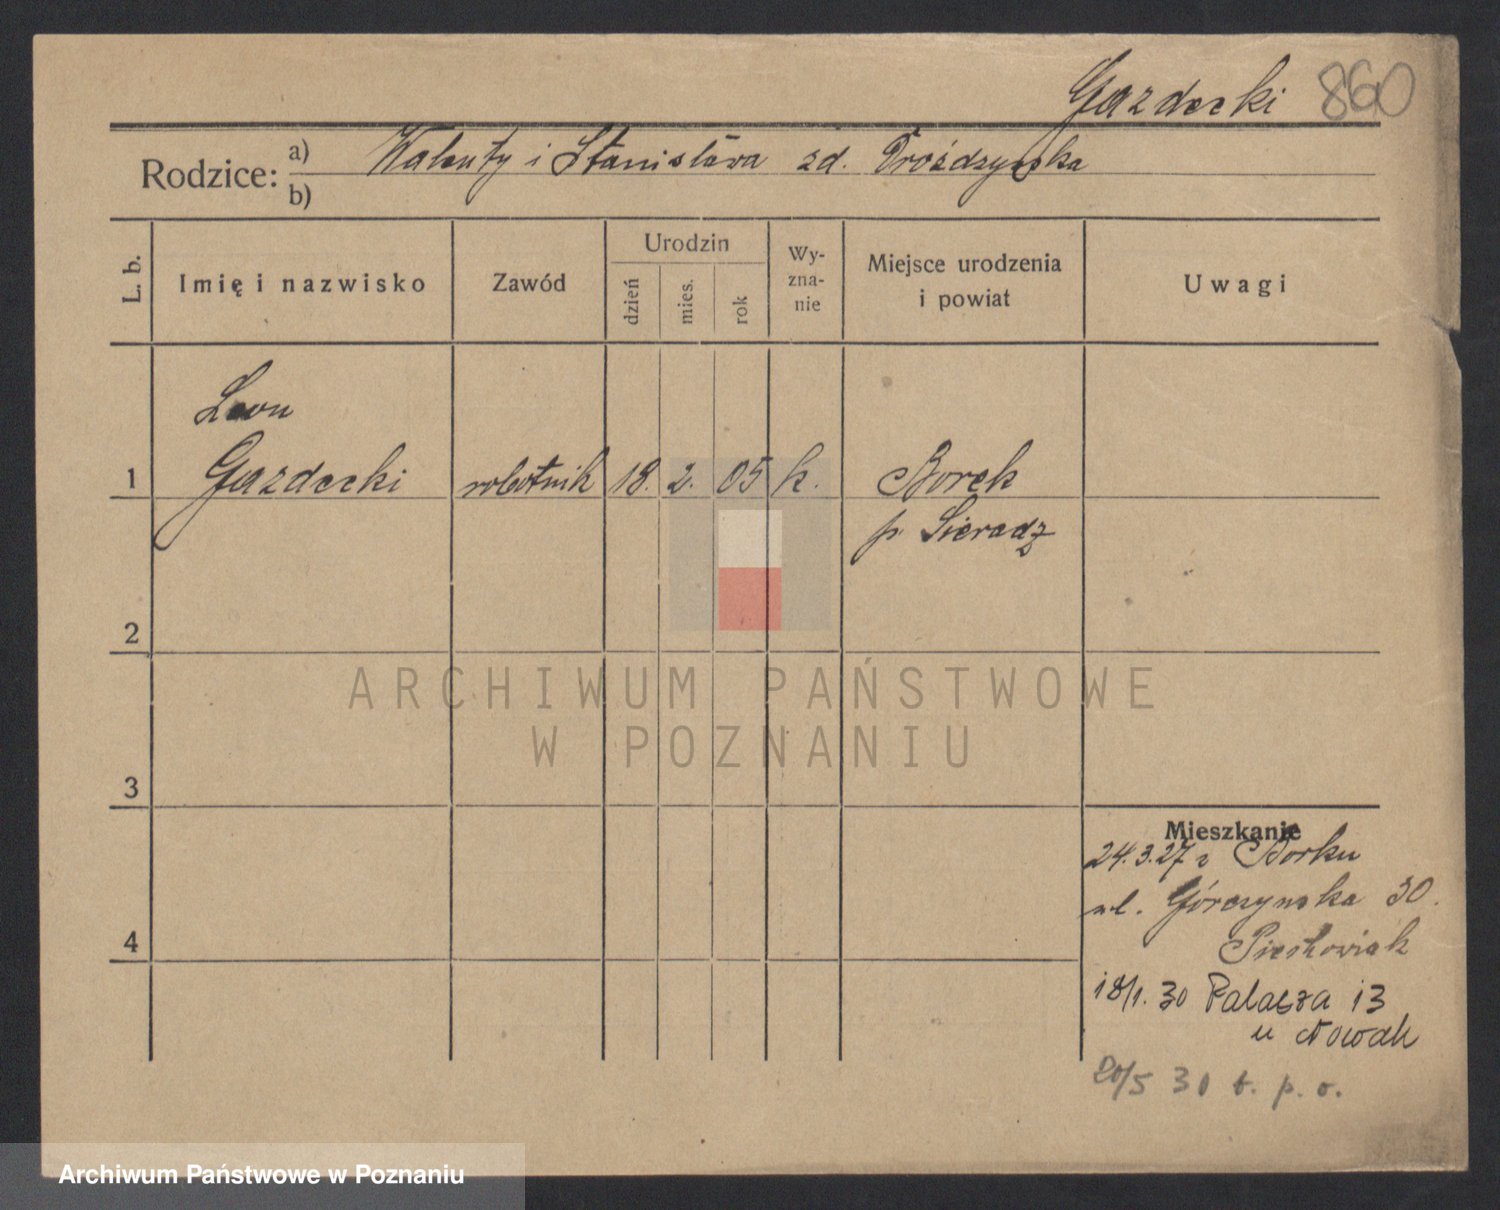 Gazdecki 860
Rodzice: a) Walenty i Stanisława zd. Drożdzynska
b)
L. b. Imię i nazwisko Zawód Urodzin dzień mies. rok Wy-zna-nie Miejsce urodzenia i powiat Uwagi
Leon
1 Gazdecki robotnik 18. 2. 05 k. Borek
p. Sieradz
2
ARCHIWUM PAŃSTWOWE
W POZNANIU
3
Mieszkanie
24.3.27 z Borku
ul. Górczynska 30.
Pieskowiak
4
18/1. 30 Palacza 13
u Nowak
20/5 30 b. p. o.
Archiwum Państwowe w Poznaniu